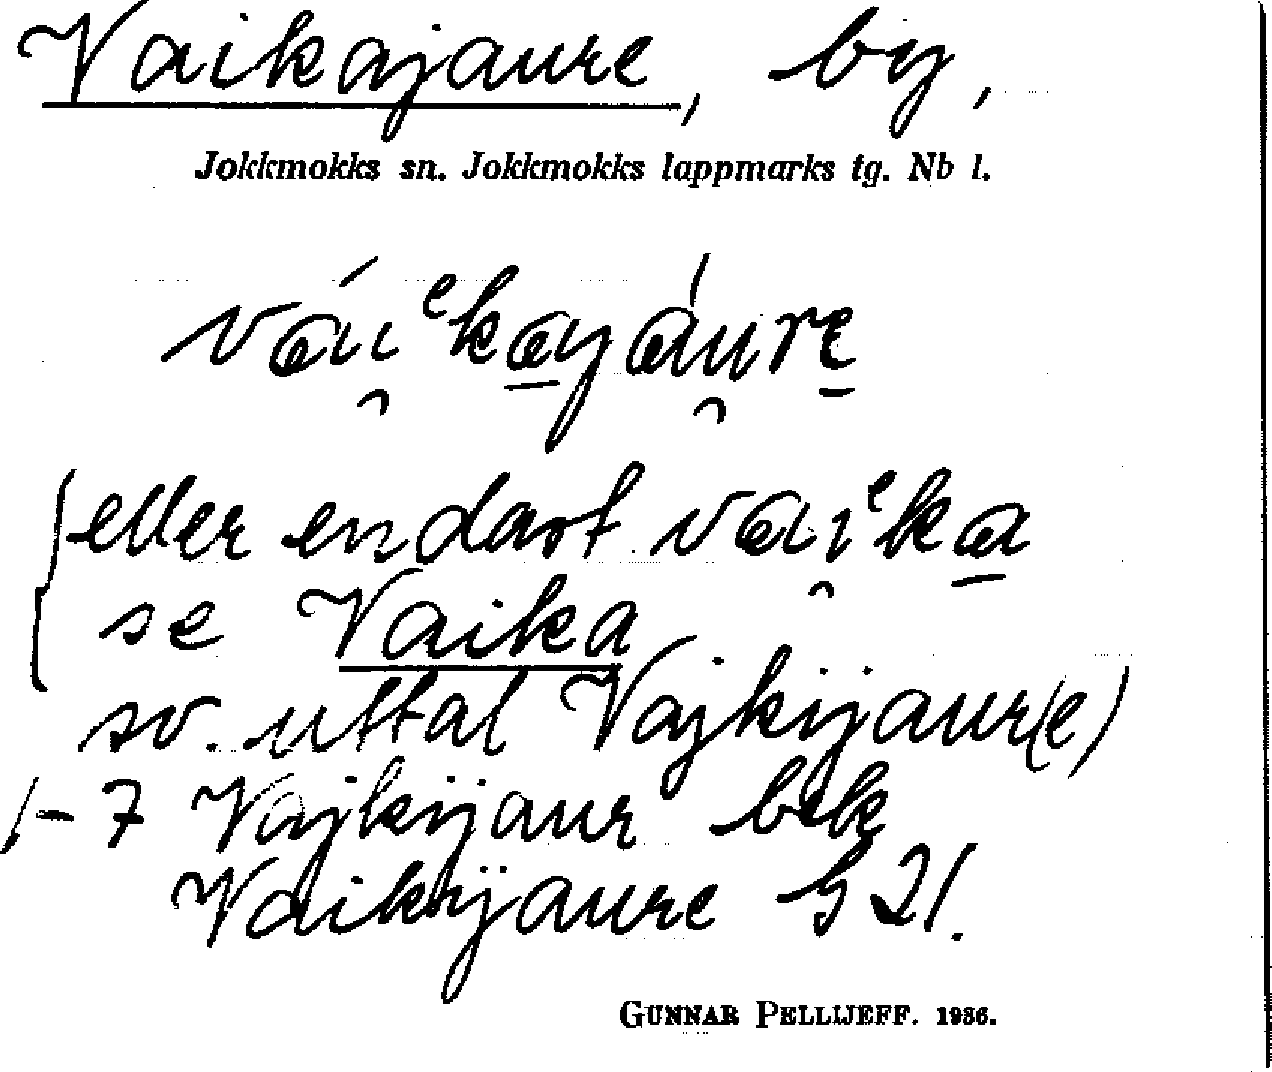 Vaikajaure, by,
Jokkmokks sn. Jokkmokks lappmarks tg. Nb l.
vái̯ᵉka̲yáu̯rę̲
eller endast vai̯ᵉka̲
se Vaika
sv. uttal Vajkijaur(e)
1-7 Vajkijaur bek
Vaikijaure G 21.
GUNNAR PELLIJEFF. 1936.